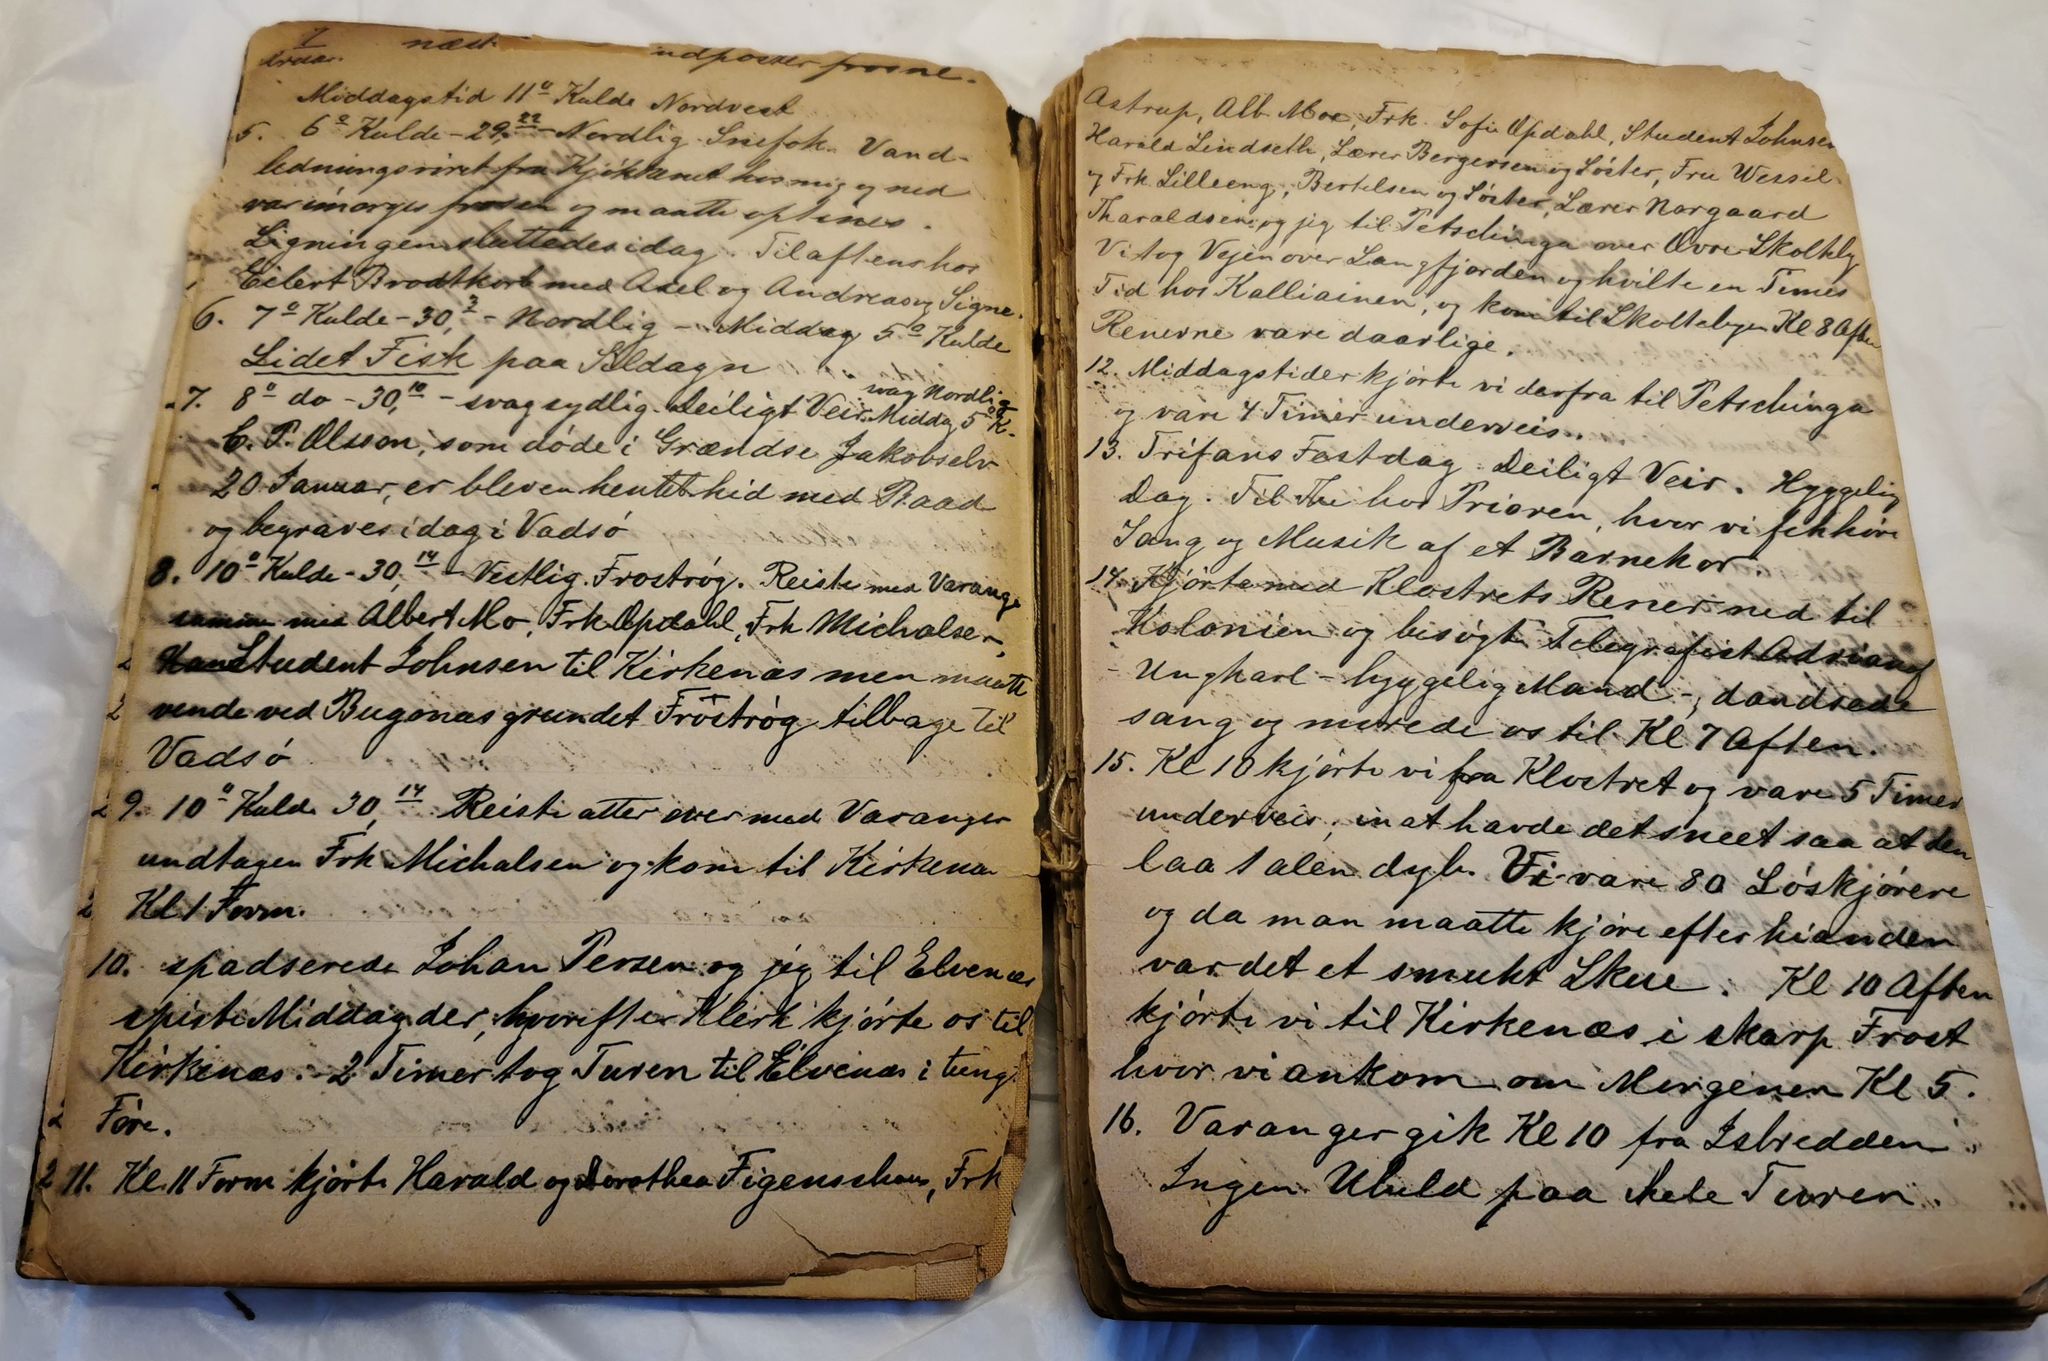 næst udposter frosne.
Middagstid 11° Kulde Nordvest
5. 6° Kulde - 29,22 - Nordlig Snefok. Vand-
ledningsröret fra Kjøkkenet hos mig og ned
var imorges frosen og maatte optines.
Ligningen sluttedes idag. Til aftens hos
Eilert Brodtkorb med Axel og Andreas og Signe.
6. 7° Kulde - 30,3 - Nordlig - Middag 5° Kulde
Lidet Fisk paa Sildagn
7. 8° do - 30,10 - svag sydlig. Deiligt Veir. svag Nordlig Middag 5° K.
C. P. Olsson, som döde i Grændse Jakobselv
20 Januar, er bleven hentet hid med Baad
og begraves idag i Vadsö
8. 10° Kulde - 30,14 - Vestlig. Froströg. Reiste med Varanger
sammen med Albert Mo, Frk Opdahl, Frk Michalsen,
Student Johnsen til Kirkenæs men maatte
vende ved Bugönæs grundet Fröströg tilbage til
Vadsö
9. 10° Kulde 30,14 Reiste atter over med Varanger
undtagen Frk Michalsen og kom til Kirkenæs
Kl 1 Form.
10. spadserede Johan Persen og jeg til Elvenæs
spiste Middag der, hvorefter Klerk kjörte os til
Kirkenæs. 2 Timer tog Turen til Elvenæs i tungt
Före.
11. Kl. 11 Form kjörte Harald og Dorothea Figenschau, Frk
Astrup, Alb Moe, Frk. Sofie Opdahl, Student Johnsen
Harald Lindseth, Lærer Bergersen og Söster, Fru Wessel
og Frk. Lilleeng, Bertelsen og Söster, Lærer Norgaard
Tharaldsen og jeg til Petschinga over Övre Skoltby
Vi tog Vejen over Langfjorden og hvilte en Times
Tid hos Kalliainen, og kom til Skoltebyen Kl 8 Aften
Renerne vare daarlige.
12. Middagstider kjörte vi derfra til Petschinga
og vare 4 Timer underveis.
13. Trifans Festdag. Deiligt Veir. Hyggelig
Dag. Til The hos Prioren, hvor vi fik höre
Sang og Musik af et Barnekor.
14. Kjörte med Klostrets Rener ned til
Kolonien og besögte Telegrafist
- Ungkarl - hyggelig Mand -, dandsede
sang og morede os til Kl 7 Aften.
15. Kl 10 kjörte vi fra Klostret og vare 5 Timer
underveis, inat havde det sneet saa at den
laa 1 alen dyb. Vi vare 80 Löskjörere
og da man maatte kjöre efter hianden
var det et smukt Skue. Kl 10 Aften
kjörte vi til Kirkenæs i skarp Frost
hvor vi ankom om Morgenen Kl 5.
16. Varanger gik Kl 10 fra Isbredden
Ingen Uheld paa hele Turen.